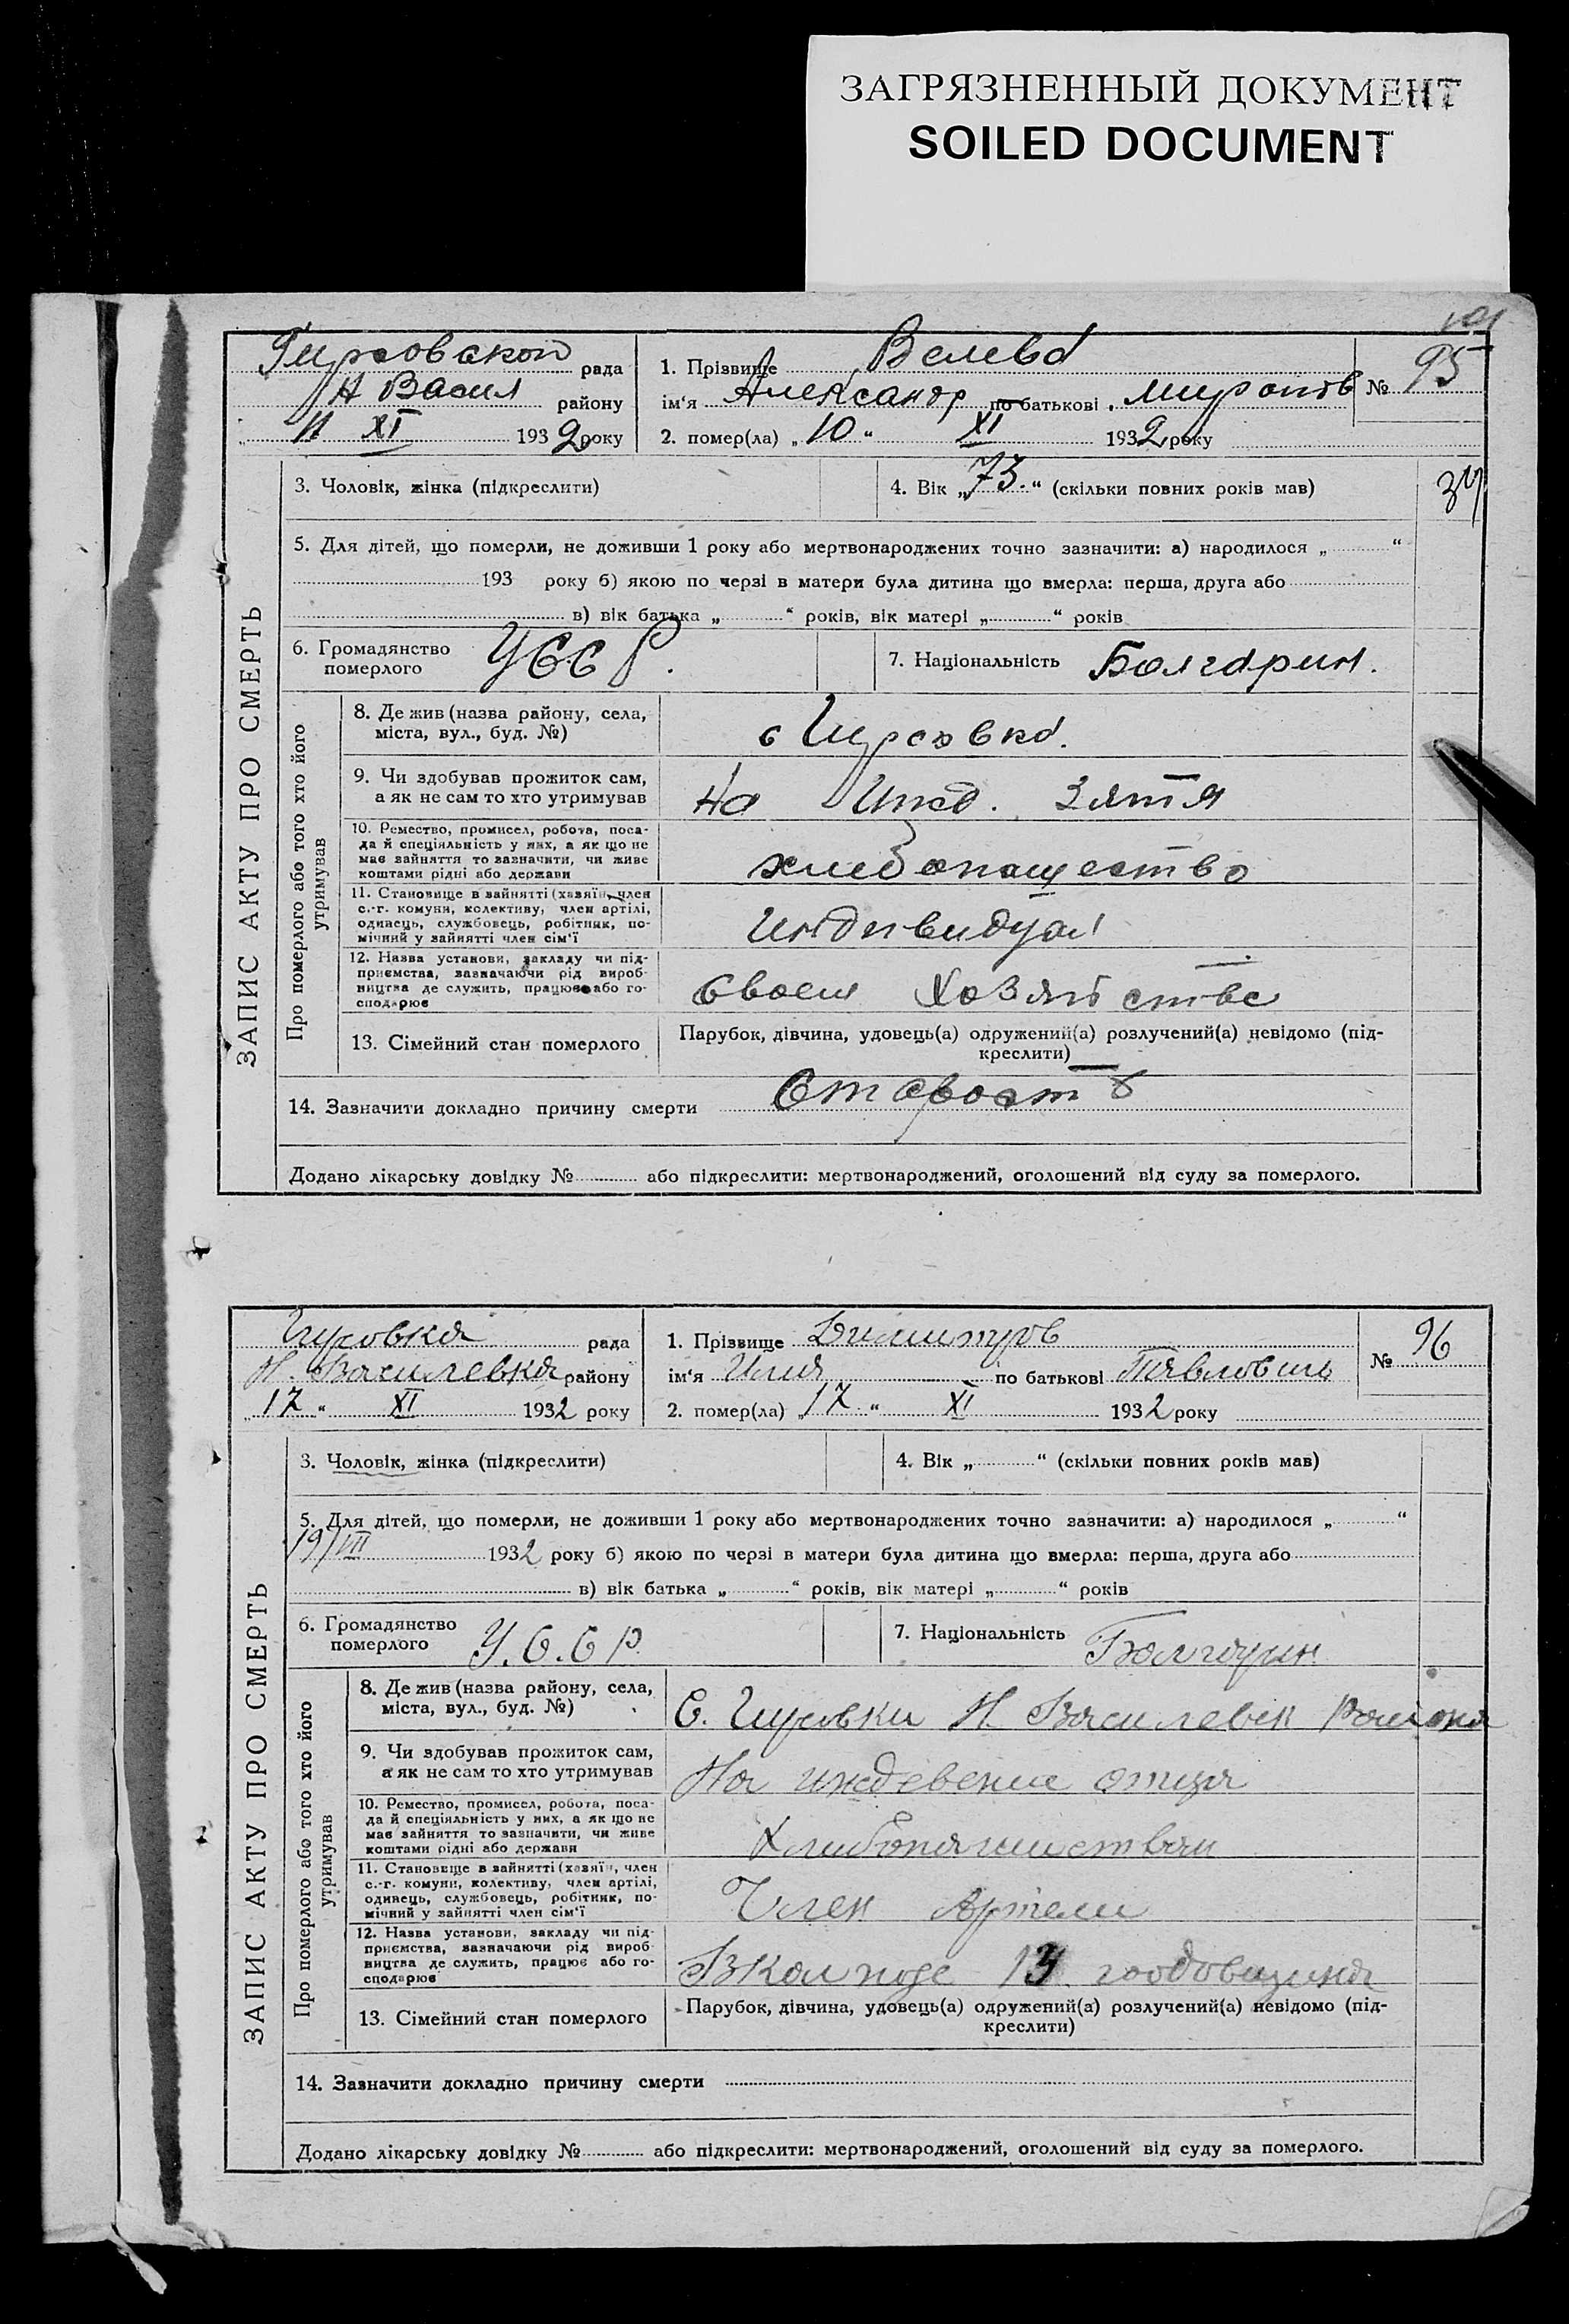 ЗАГРЯЗНЕННЫЙ ДОКУМЕНТ
SOILED DOCUMENT
рада
Н Васил району
11 XI 1932 року
1. Прізвище
ім'я Александр по батькові Миронов
2. помер(ла) „10“ XI 1932 року
№ 95
ЗАПИС АКТУ ПРО СМЕРТЬ
3. Чоловік, жінка (підкреслити)
4. Вік „73.“ (скільки повних років мав)
34
5. Для дітей, що померли, не доживши 1 року або мертвонароджених точно зазначити: а) народилося „ “
193 року б) якою по черзі в матери була дитина що вмерла: перша, друга або
в) вік батька „ “ років, вік матері „ “ років
6. Громадянство померлого УССР.
7. Національність Болгарин.
Про померлого або того хто його утримував
8. Де жив (назва району, села,
міста, вул., буд. №)
9. Чи здобував прожиток сам,
а як не сам то хто утримував
На Ижд. Зятя
10. Ремество, промисел, робота, поса-
да й спеціяльність у них, а як що не
має зайняття то зазначити, чи живе
коштами рідні або держави
хлибопашество
11. Становище в зайнятті (хазяїн, член
с.-г. комуни, колективу, член артілі,
одинець, службовець, робітник, по-
мічний у зайнятті член сім'ї
Индивидуал
12. Назва установи, закладу чи під-
приємства, зазначаючи рід вироб-
ництва де служить, працює або го-
сподарює
Своем Хозяйстве
13. Сімейний стан померлого
Парубок, дівчина, удовець(а) одружений(а) розлучений(а) невідомо (під-
креслити)
14. Зазначити докладно причину смерти Старость
Додано лікарську довідку № або підкреслити: мертвонароджений, оголошений від суду за померлого.
рада
Н. Василевка району
„17“ XI 1932 року
1. Прізвище Димитров
ім'я Илия по батькові Павлович
2. помер(ла) „17“ XI 1932 року
№ 96
ЗАПИС АКТУ ПРО СМЕРТЬ
3. Чоловік, жінка (підкреслити)
4. Вік „ “ (скільки повних років мав)
5. Для дітей, що померли, не доживши 1 року або мертвонароджених точно зазначити: а) народилося „ “
19/VII 1932 року б) якою по черзі в матери була дитина що вмерла: перша, друга або
в) вік батька „ “ років, вік матері „ “ років
6. Громадянство померлого У.С.С.Р.
7. Національність Болгарин
Про померлого або того хто його утримував
8. Де жив (назва району, села,
міста, вул., буд. №)
С. Н. Василевск района
9. Чи здобував прожиток сам,
а як не сам то хто утримував
На иждевении отца
10. Ремество, промисел, робота, поса-
да й спеціяльність у них, а як що не
має зайняття то зазначити, чи живе
коштами рідні або держави
11. Становище в зайнятті (хазяїн, член
с.-г. комуни, колективу, член артілі,
одинець, службовець, робітник, по-
мічний у зайнятті член сім'ї
Член Артели
12. Назва установи, закладу чи під-
приємства, зазначаючи рід вироб-
ництва де служить, працює або го-
сподарює
годовщина
13. Сімейний стан померлого
Парубок, дівчина, удовець(а) одружений(а) розлучений(а) невідомо (під-
креслити)
14. Зазначити докладно причину смерти
Додано лікарську довідку № або підкреслити: мертвонароджений, оголошений від суду за померлого.